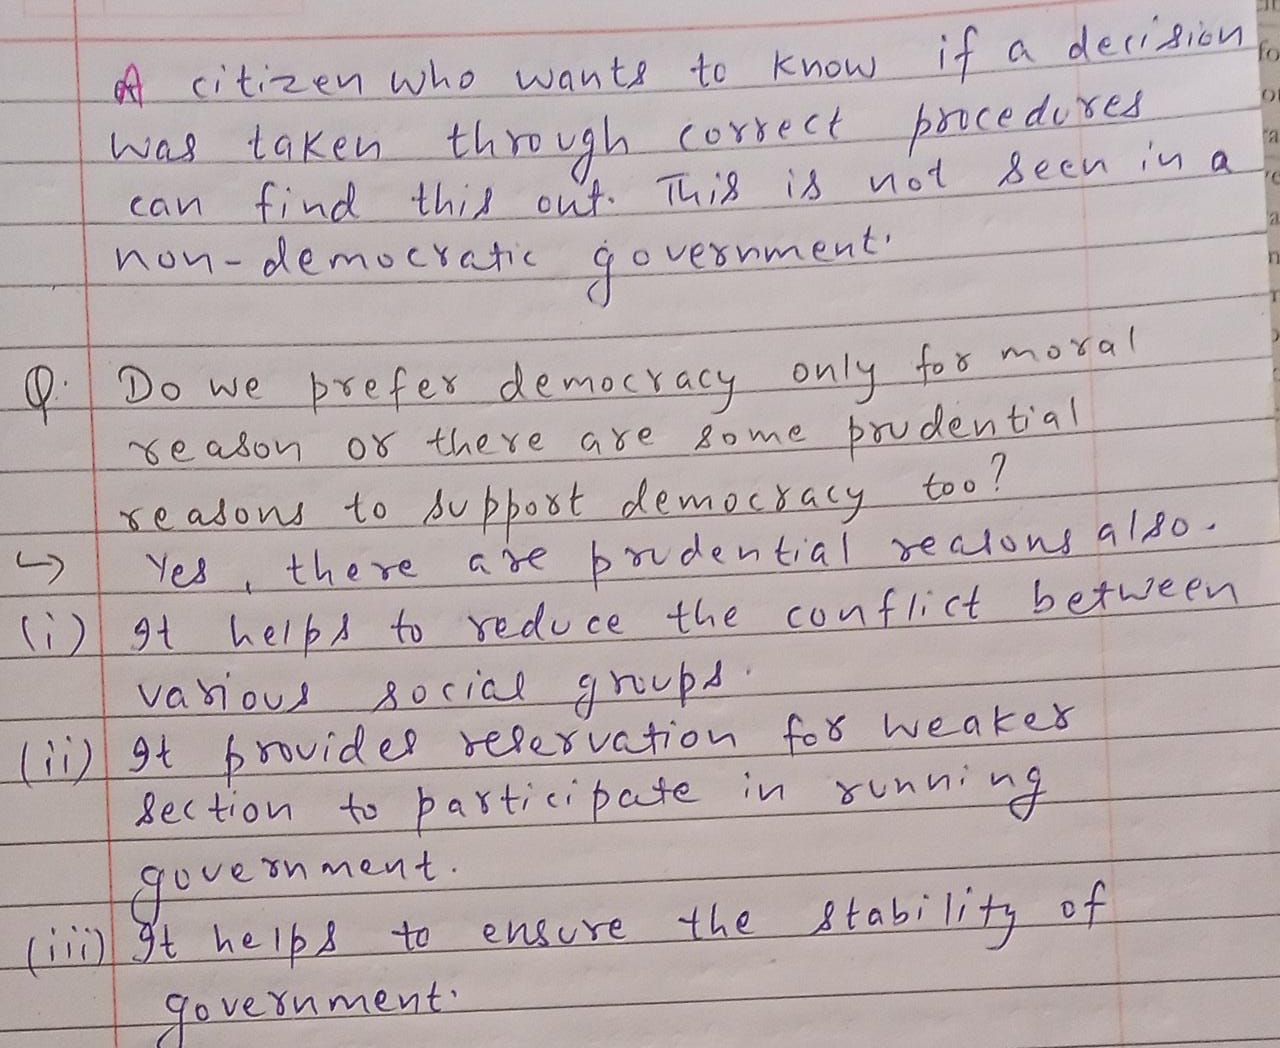 A citizen who wants to know if a decision
was taken through correct procedures
can find this out. This is not seen in a
non-democratic government.
Q. Do we prefer democracy only for moral
reason or there are some prudential
reasons to support democracy too?
↳ Yes, there are prudential reasons also.
(i) It helps to reduce the conflict between
various social groups.
(ii) It provides reservation for weaker
section to participate in running
government.
(iii) It helps to ensure the stability of
government.